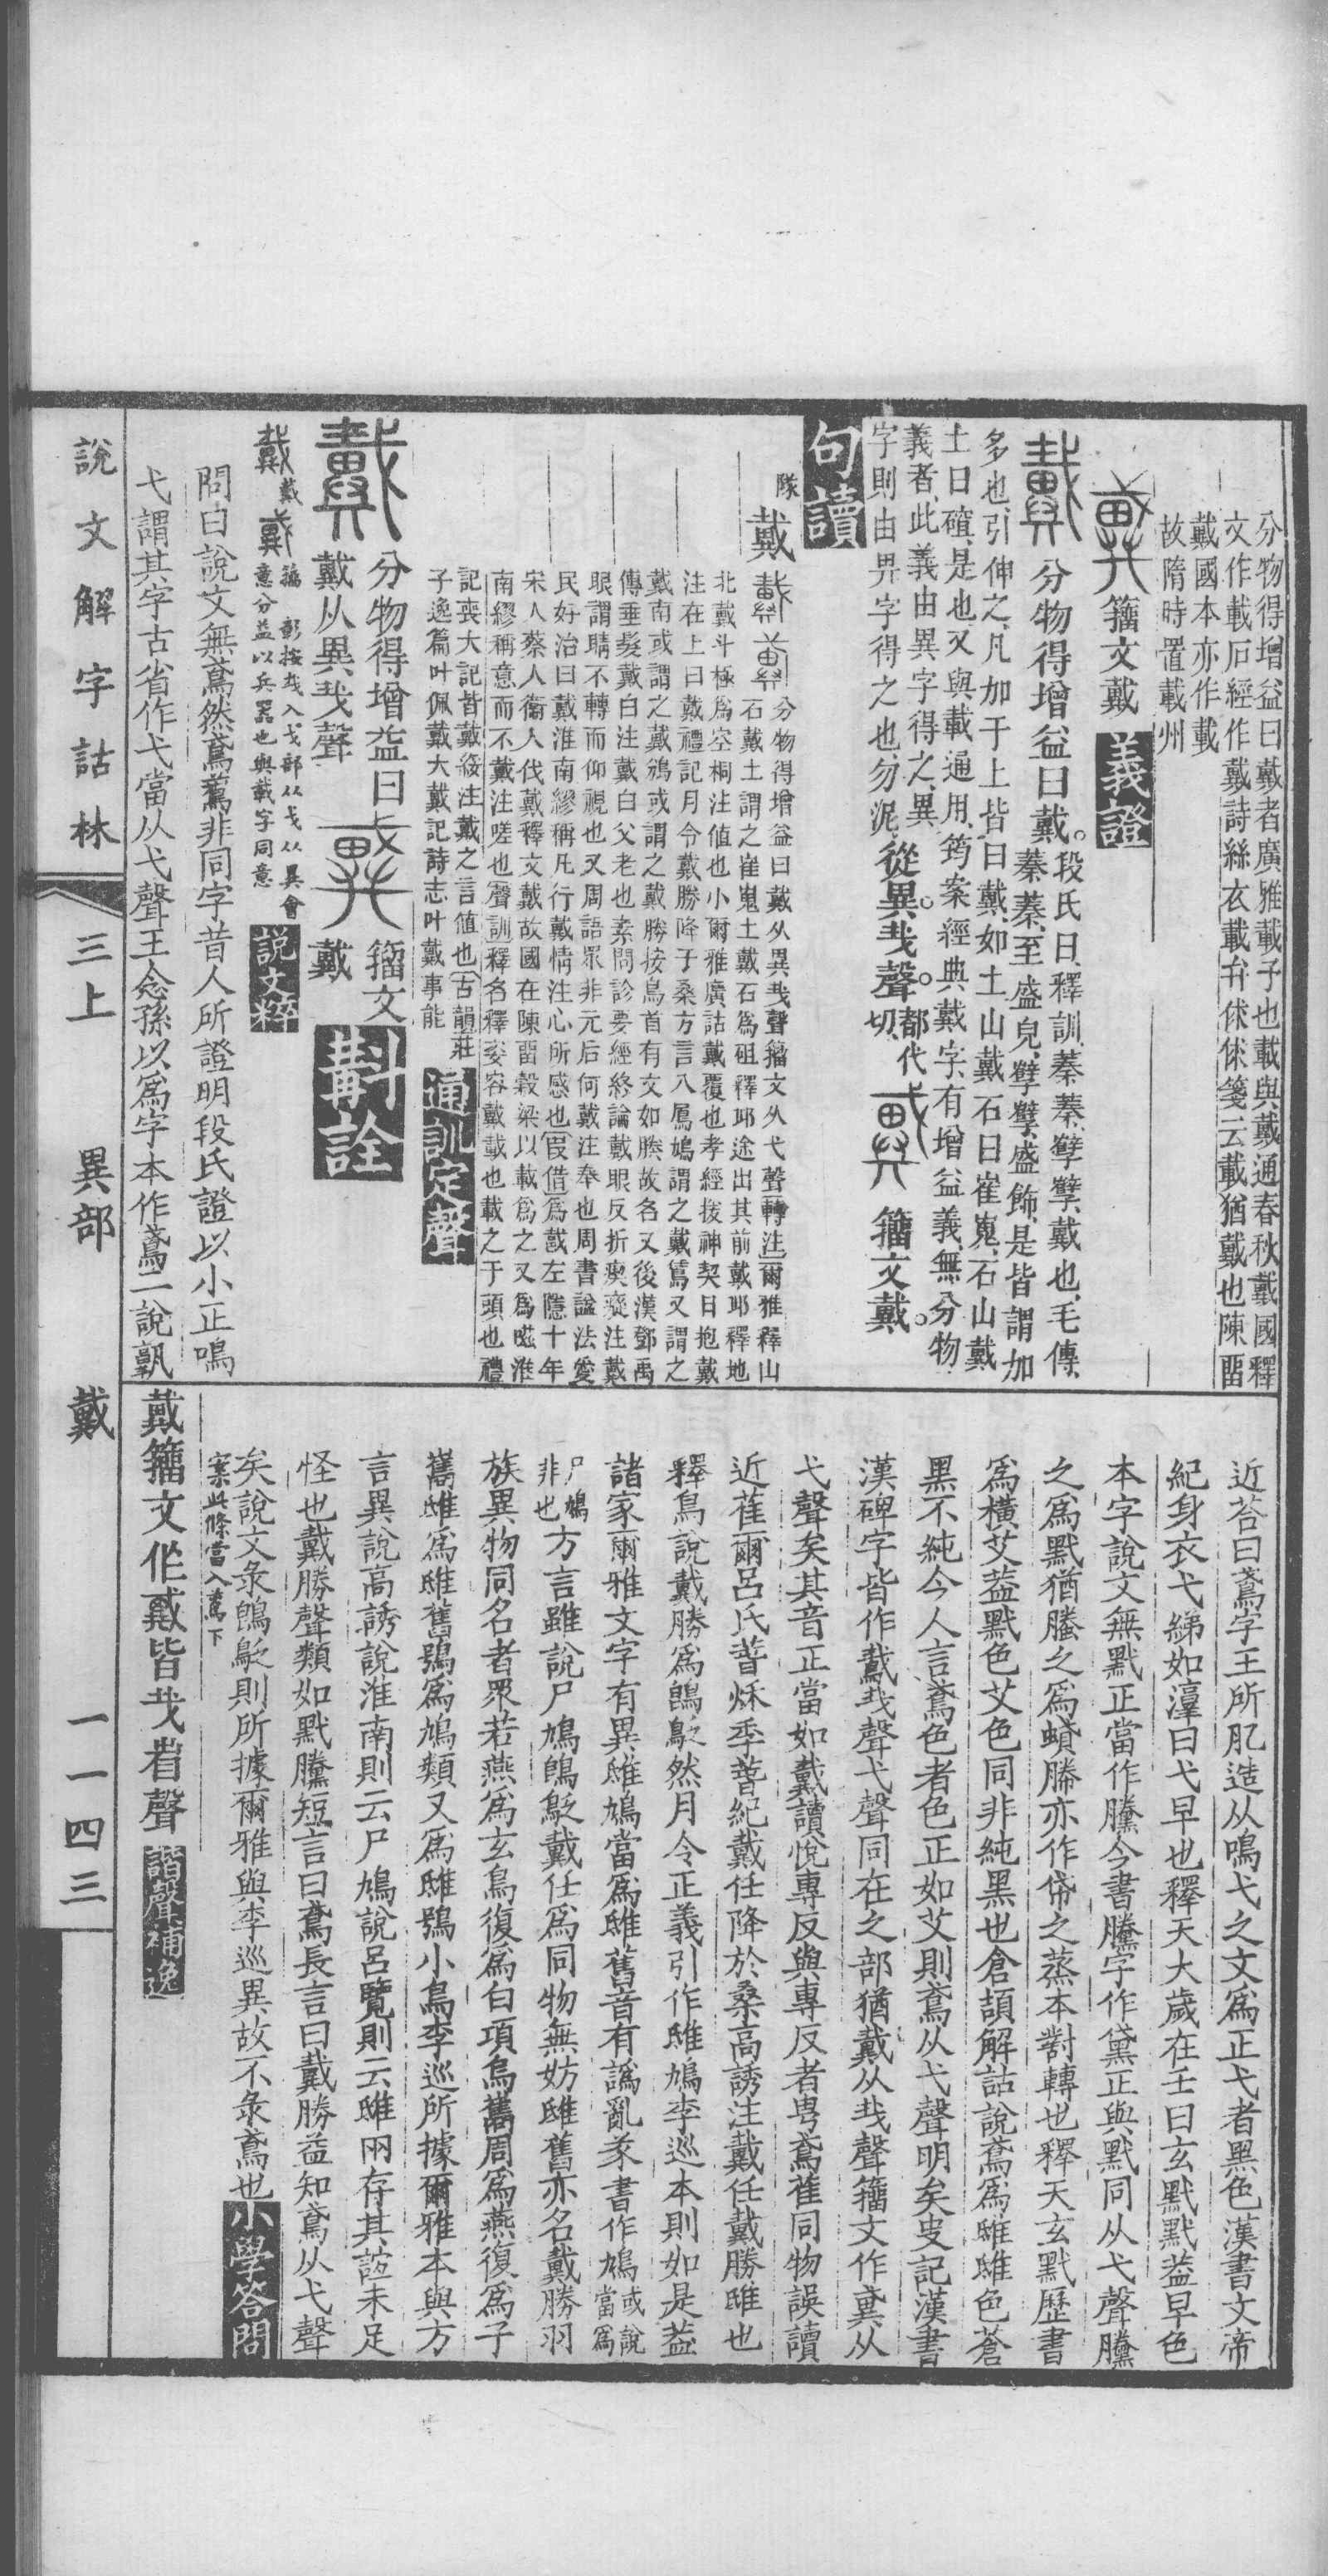 分物得增益曰戴者廣雅載子也載與戴通春秋戴國釋
文作載石經作戴詩絲衣載弁俅俅箋云載猶戴也陳畱
戴國本亦作載
故隋時置載州
籀文戴 義證
戴 分物得增益曰戴。段氏曰釋訓蓁蓁孼孼戴也毛傳
蓁蓁至盛皃孼孼盛飾是皆謂加
多也引伸之凡加于上皆曰戴如土山戴石曰崔嵬石山戴
土曰磪是也又與載通用筠案經典戴字有增益義無分物
義者此義由異字得之異
字則由畀字得之也勿泥 從異𢦏聲。都代切 籀文戴。
句讀
隊
戴 分物得增益曰戴从異𢦏聲籀文从弋聲轉注爾雅釋山
石戴土謂之崔嵬土戴石爲砠釋邱途出其前戴邱釋地
北戴斗極爲空桐注值也小爾雅廣詁戴覆也孝經援神契曰抱戴
注在上曰戴禮記月令戴勝降于桑方言八鳲鳩謂之戴鵀又謂之
戴南或謂之戴鳻或謂之戴勝按鳥首有文如勝故名又後漢鄧禹
傳垂髮戴白注戴白父老也素問診要經終論戴眼反折瘈瘲注戴
眼謂睛不轉而仰視也又周語眾非元后何戴注奉也周書諡法愛
民好治曰戴淮南繆稱凡行戴情注心所感也叚借爲戴左隱十年
宋人蔡人衞人伐戴釋文戴故國在陳畱穀梁以載爲之又爲
南繆稱意而不戴注嗟也聲訓釋名釋姿容戴載也載之于頭也禮
記喪大記皆戴綏注戴之言值也古韻莊
子逸篇叶佩戴大戴記詩志叶戴事能 通訓定聲
戴 分物得增益曰
戴从異𢦏聲 籀文
戴 斠詮
戴 彰按𢦏入戈部从戈从異會
意分益以兵器也與載字同意 説文粹
問曰說文無鳶然鳶鷻非同字昔人所證明段氏證以小正鳴
弋謂其字古省作弋當从弋聲王念孫以爲字本作鳶二說孰
近荅曰鳶字王所肊造从鳴弋之文爲正弋者黑色漢書文帝
紀身衣弋綈如淳曰弋早也釋天大歲在壬曰玄黓黓葢早色
本字說文無黓正當作騰今書騰字作黛正與黓同从弋聲騰
之爲黓猶螣之爲蟘縢亦作帒之蒸本對轉也釋天玄黓歷書
爲橫艾葢黓色艾色同非純黑也倉頡解詁說鳶爲鴟鴟色蒼
黑不純今人言鳶色者色正如艾則鳶从弋聲明矣史記漢書
漢碑字皆作䳒𢦏聲弋聲同在之部猶戴从𢦏聲籀文作从
弋聲矣其音正當如戴讀悅專反與專反者粵鳶萑同物誤讀
近萑爾呂氏春秋季春紀戴任降於桑高誘注戴任戴勝鴟也
釋鳥說戴勝爲鵖鴔然月令正義引作鴟鳩李巡本則如是葢
諸家爾雅文字有異鴟鳩當爲鴟舊音有譌亂㒸書作鳩或說當爲
尸鳩非也方言雖說尸鳩鵖鴔戴任爲同物無妨鴟舊亦名戴勝羽
族異物同名者眾若燕爲玄鳥復爲白項烏巂周爲燕復爲子
巂鴟爲鴟舊鴞爲鳩類又爲鴟鴞小鳥李巡所據爾雅本與方
言異說高誘說淮南則云尸鳩說呂覽則云鴟兩存其誼未足
怪也戴勝聲類如黓騰短言曰鳶長言曰戴勝益知鳶从弋聲
矣說文彔鵖鴔則所據爾雅與李巡異故不彔鳶也 小學答問
案此條當入鳶下
戴籀文作皆𢦏省聲 諧聲補逸
說文解字詁林 三上 異部 戴 一一四三